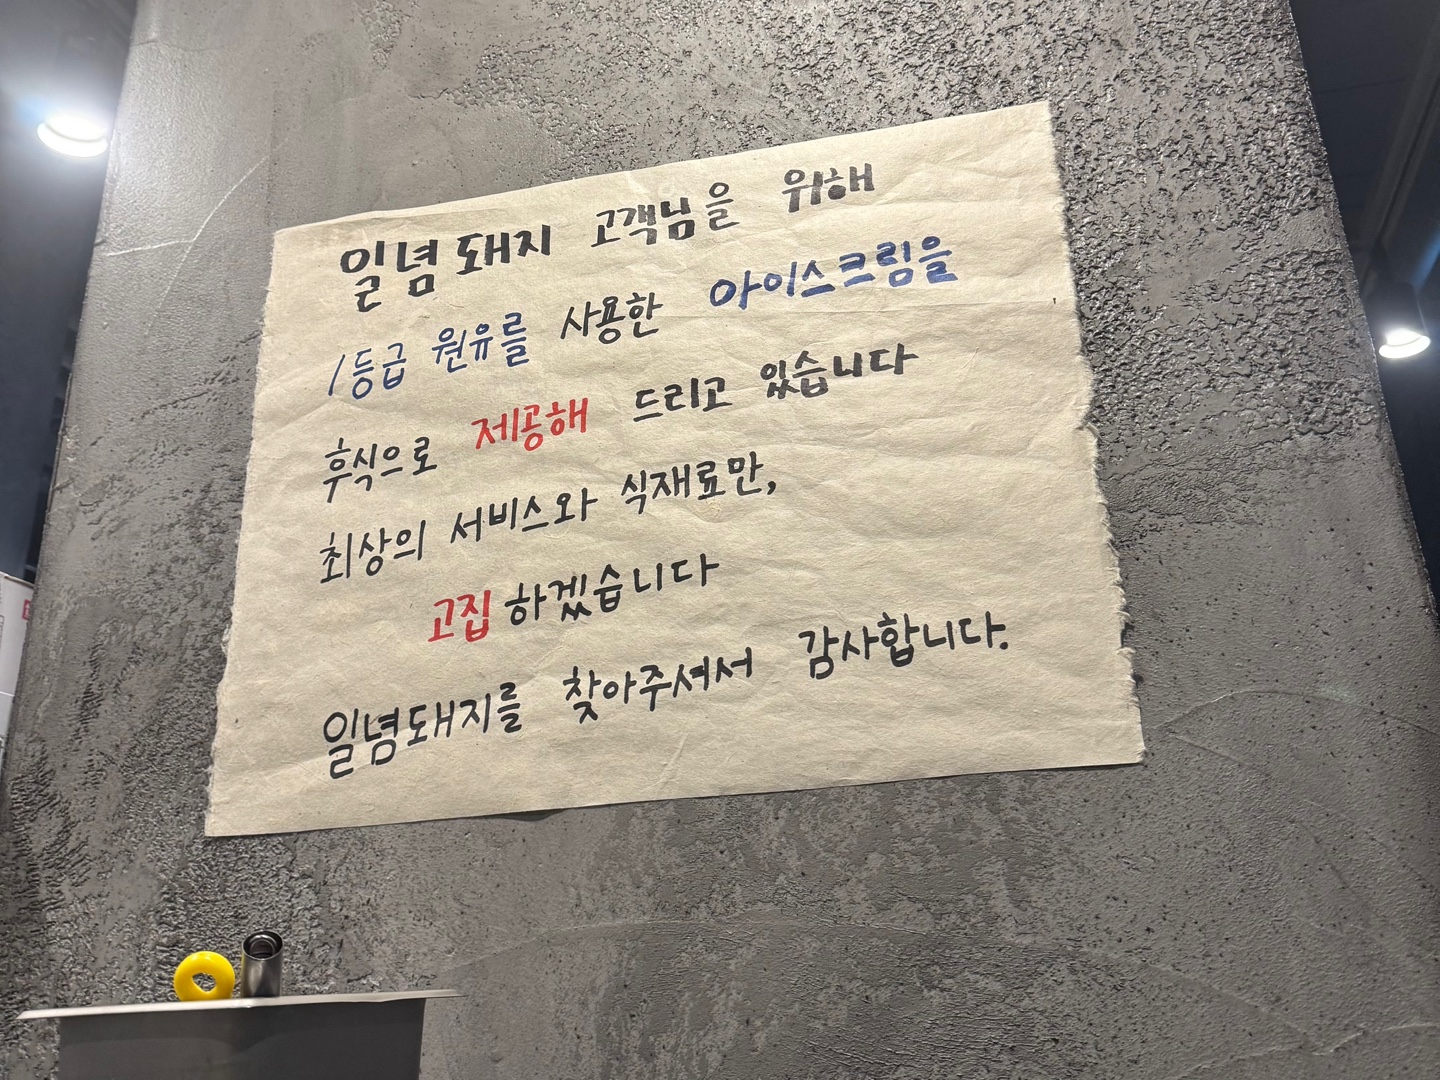 일념돼지 고객님을 위해
1등급 원유를 사용한 아이스크림을
후식으로 제공해 드리고 있습니다
최상의 서비스와 식재료만,
고집 하겠습니다
일념돼지를 찾아주셔서 감사합니다.